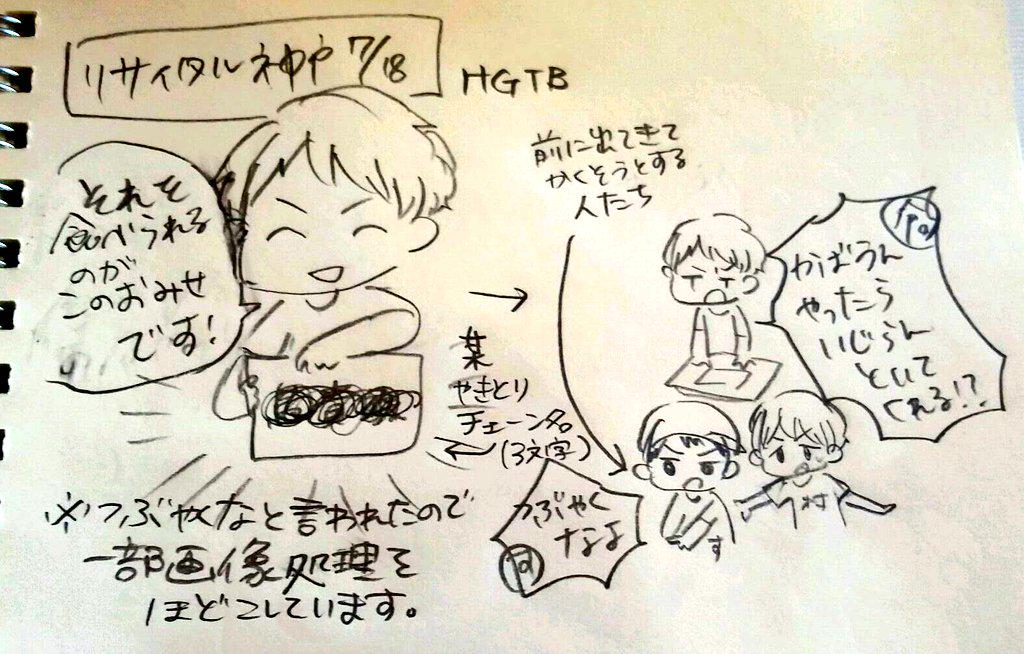 リサイタル神戸 7/18
HGTB
それを
食べられる
のが
このおみせ
です!
→
某
やきとり
チェーン名
(3文字)
前に出てきて
かくそうとする
人たち
かばうん
やったら
いじらん
といて
くれる!?
つぶやく
なよ
河
す
村
※つぶやくなと言われたので
一部画像処理を
ほどこしています。